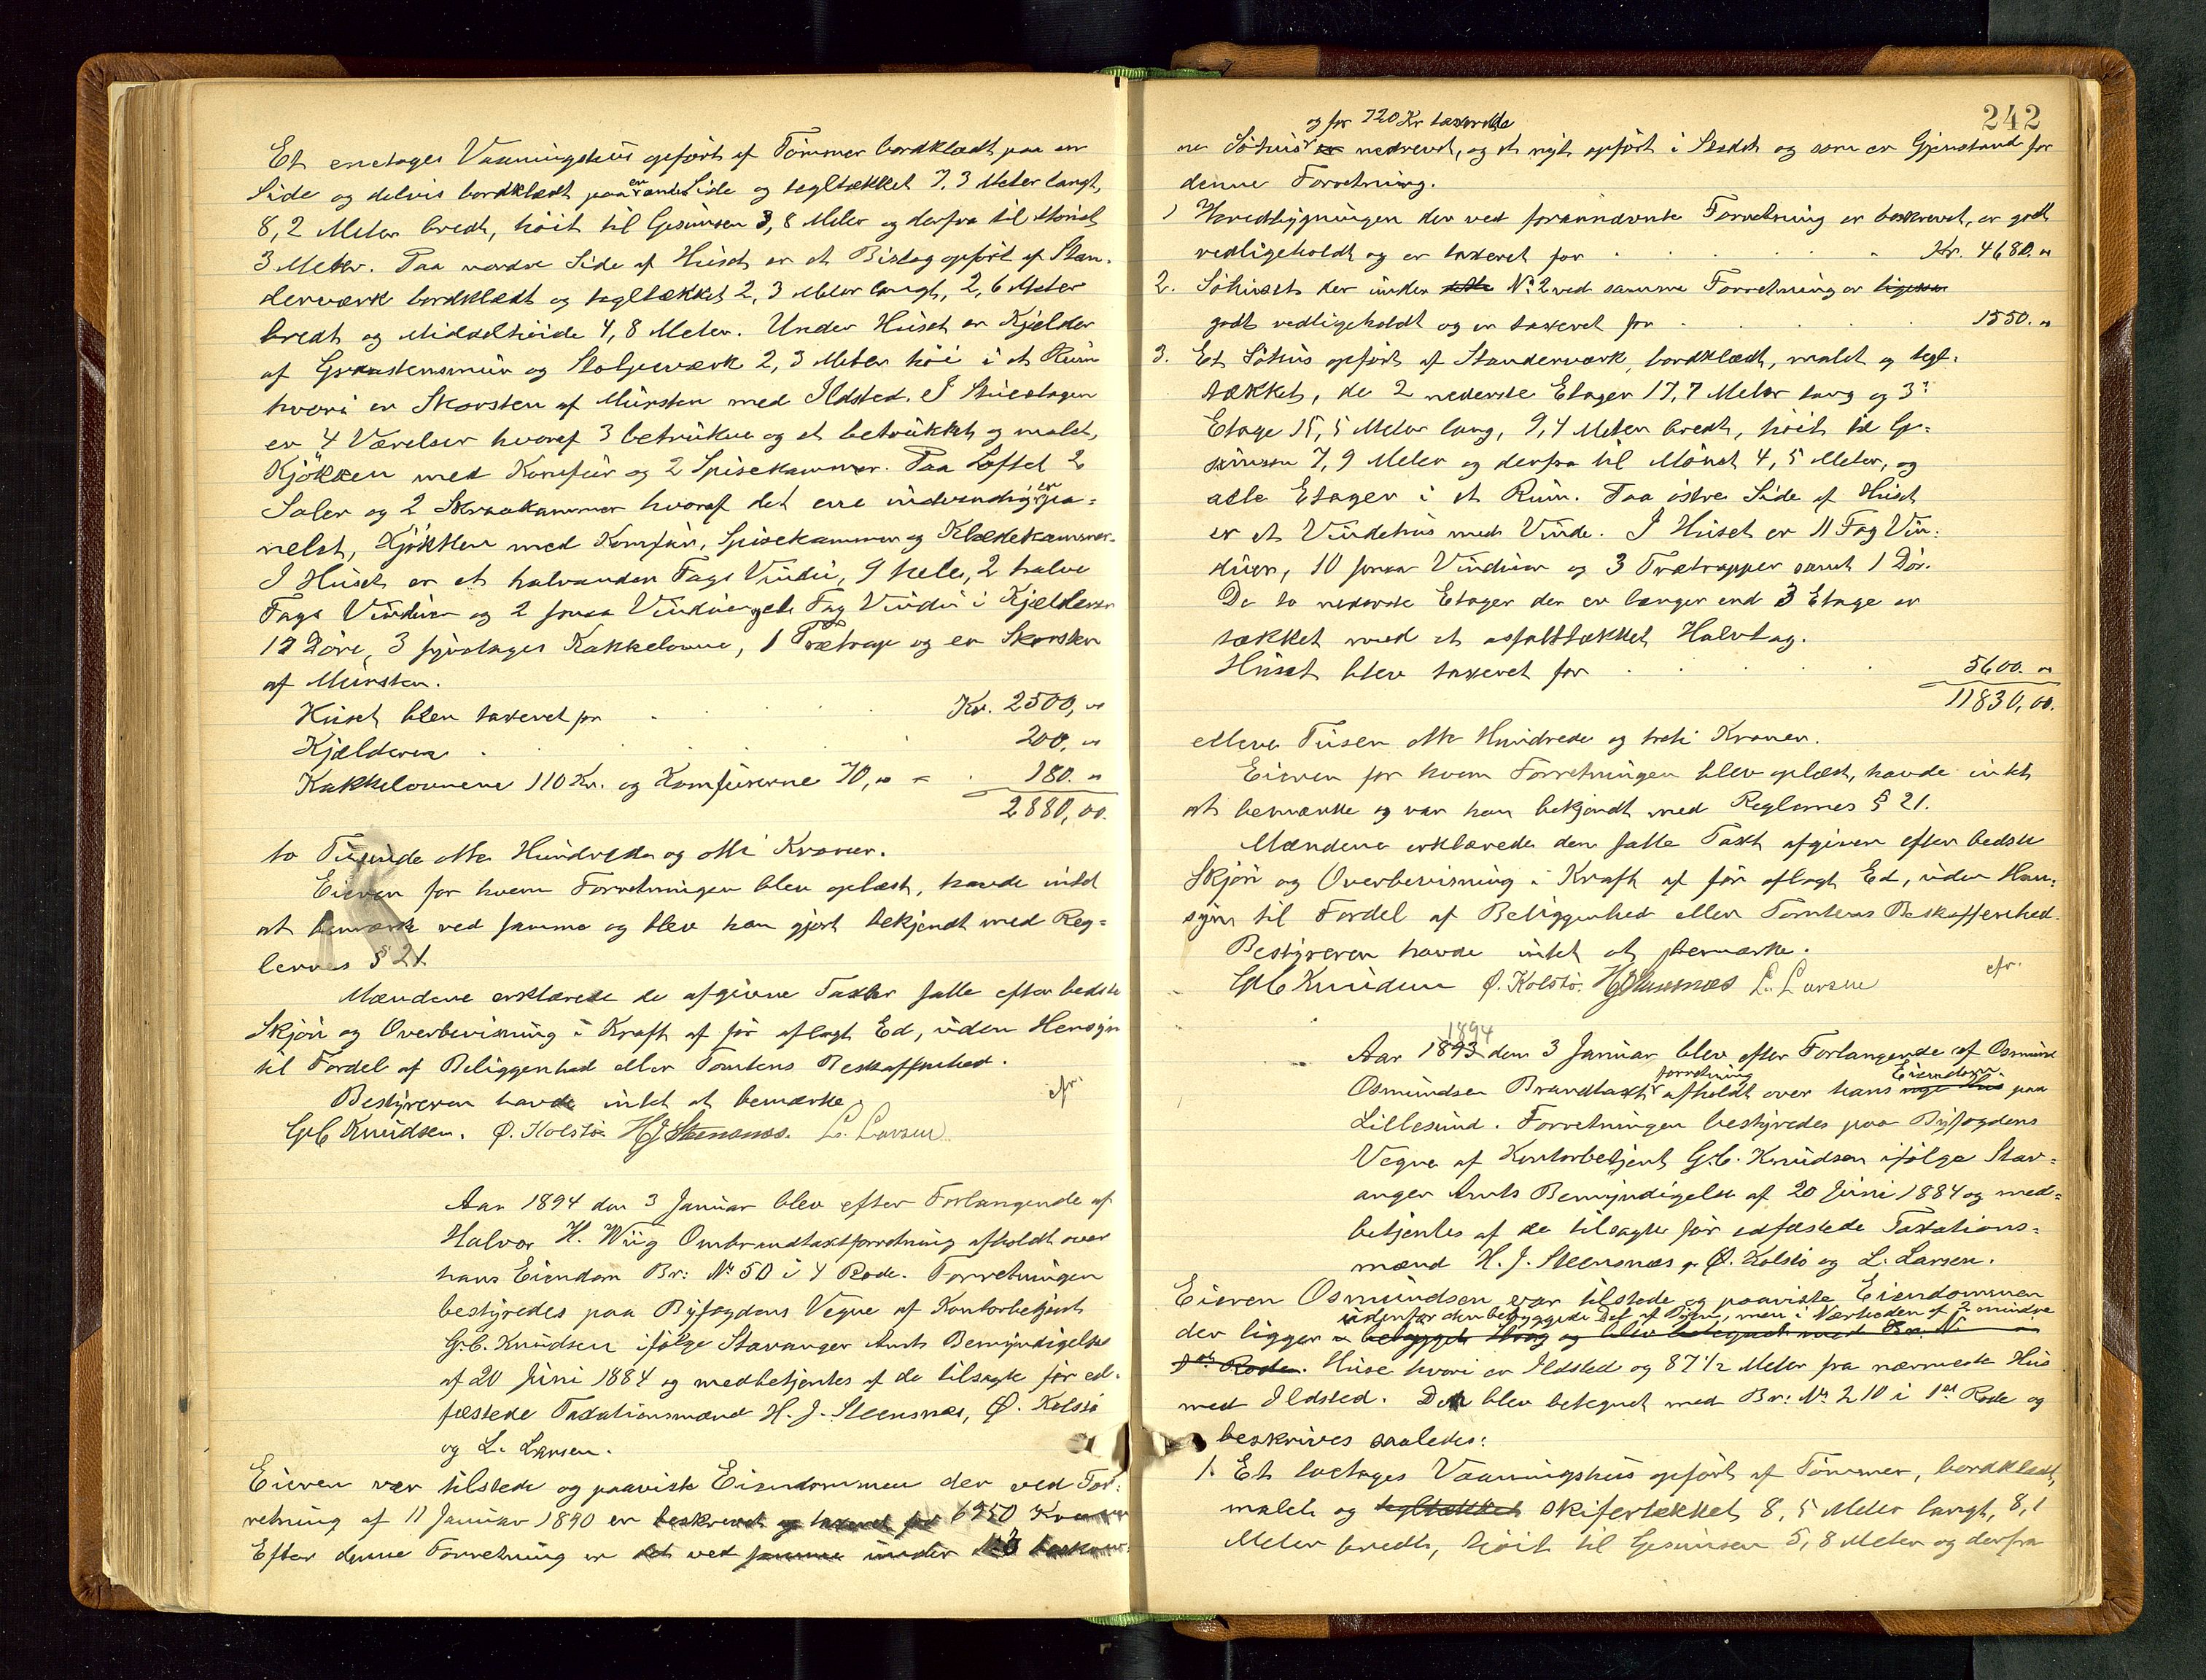 Et enetages Vaaningshus opført af Tømmer bordklædt paa en
Side og delvis bordklædt paa en anden Side og tegltækket 7,3 Meter langt,
8,2 Meter bredt, høit til Gesimsen 3,8 Meter og derfra til Mønet
3 Meter. Paa nordre Side af Huset er et Bislag opført af Stan-
derværk bordklædt og tegltækket 2,3 Meter langt, 2,6 Meter
bredt og Middelhøide 4,8 Meter. Under Huset er Kjelder
af Graastensmur og Stolpeværk 2,3 Meter høi i et Rum
hvori er Skorsten af Mursten med Ildsted. I Stueetagen
er 4 Værelser hvoraf 3 betrukne og et betrukket og malet,
Kjøkken med Komfur og 2 Spisekammer. Paa Loftet 2
Saler og 2 Skraakammer hvoraf det ene indvendig er pa=
nelet, Kjøkken med Komfur, Spisekammer og Klædekammer.
I Huset er et halvanden Fags Vindu, 9 hele, 2 halve
Fags Vinduer og 2 smaa Vinduer, et Fag Vindu i Kjelderen
12 Døre, 3 Kakkelovne, 1 Trætrap og en Skorsten
af Mursten.
Huset blev taxeret for Kr. 2500,00
Kjælderen 200,00
Kakkelovnene 110 Kr. og Komfurerne 70,00 = 180.00
2880,00.
to Tusinde otte Hundrede og otti Kroner.
Eieren for hvem Forretningen blev oplæst, havde intet
at bemærke ved samme og blev han gjort bekjendt med Reg=
lernes § 21.
Mændene erklærede de afgivne Taxter satte efter bedste
Skjøn og Overbevisning i Kraft af før aflagt Ed, uden Hensyn
til Fordel af Beliggenhed eller Tomtens Beskaffenhed.
Bestyreren havde intet at bemærke. cfr.
G.C. Knudsen. Ø. Kolstø H J Steensnæs. L. Larsen
Aar 1894 den 3 Januar blev efter Forlangende af
Halvor H. Wiig Ombrandtaxtforretning afholdt over
hans Eiendom Br: No 50 i 4 Rode. Forretningen
bestyredes paa Byfogdens Vegne af Kontorbetjent
G.C. Knudsen ifølge Stavanger Amts Bemyndigelse
af 20 Juni 1884 og medbetjentes af de tilsagte før ed-
fæstede Taxationsmænd H. J. Steensnæs, Ø. Kolstø
og L. Larsen.
Eieren var tilstede og paaviste Eiendommen der ved For-
retning af 11 Januar 1890 er beskrevet og taxeret for 6950 Kroner
Efter denne Forretning er det ved samme under No 3 beskrev-
242
og for 720 Kr taxerede
ne Søhus er nedrevet, og et nyt opført i Stedet og som er Gjenstand for
denne Forretning.
1 Hovedbygningen der ved forannævnte Forretning er beskrevet, er godt
vedligeholdt og er taxeret for Kr. 4680.00
2. Søhuset der under No 2 ved samme Forretning er ligesaa
godt vedligeholdt og er taxeret for 1550.00
3. Et Søhus opført af Standerværk, bordklædt, malet og tegl-
tækket, de 2 nederste Etager 17,7 Meter lang og 3die
Etage 15,5 Meter lang, 9,4 Meter bredt, høit til Ge-
simsen 7,9 Meter og derfra til Mønet 4,5 Meter, og
alle Etager i et Rum. Paa østre Side af Huset
er et Vindehus med Vinde. I Huset er 11 Fag Vin-
duer, 10 smaa Vinduer og 3 Trætrapper samt 1 Dør.
De to nederste Etager der er længer end 3 Etage er
tækket med et asfalttækket Halvtag.
Huset blev taxeret for 5600.00
11830,00.
elleve Tusen otte Hundrede og treti Kroner.
Eieren for hvem Forretningen blev oplæst, havde intet
at bemærke og var han bekjendt med Reglernes § 21.
Mændene erklærede den satte Taxt afgiven efter bedste
Skjøn og Overbevisning i Kraft af før aflagt Ed, uden Hen-
syn til Fordel af Beliggenhed eller Tomtens Beskaffenhed.
Bestyreren havde intet at bemærke. cfr.
G.C. Knudsen Ø. Kolstø. H J Steensnæs L. Larsen
1894
Aar 1893 den 3 Januar blev efter Forlangende af Osmund
forretning Eiendom
Osmundsen Brandtaxt afholdt over hans nye Hus paa
Lillesund. Forretningen bestyredes paa Byfogdens
Vegne af Kontorbetjent G.C. Knudsen ifølge Stav=
anger Amts Bemyndigelse af 20 Juni 1884 og med=
betjentes af de tilsagte før edfæstede Taxations=
mænd H. J. Steensnæs, Ø. Kolstø og L. Larsen.
Eieren Osmundsen var tilstede og paaviste Eiendommen
udenfor den bebyggede Del af Byen, men i Nærheden af 2 mindre
der ligger i bebygget Strøg og blev betegnet med Br. No
1ste Rode. Huse hvori er Ildsted og 87 1/2 Meter fra nærmeste Hus
med Ildsted. Den blev betegnet med Br: No 210 i 1ste Rode og
beskrives saaledes:
1. Et toetages Vaaningshus opført af Tømmer, bordklædt,
malet og tegltækket skifertækket 8,5 Meter langt, 8,1
Meter bredt, høit til Gesimsen 5,8 Meter og derfra